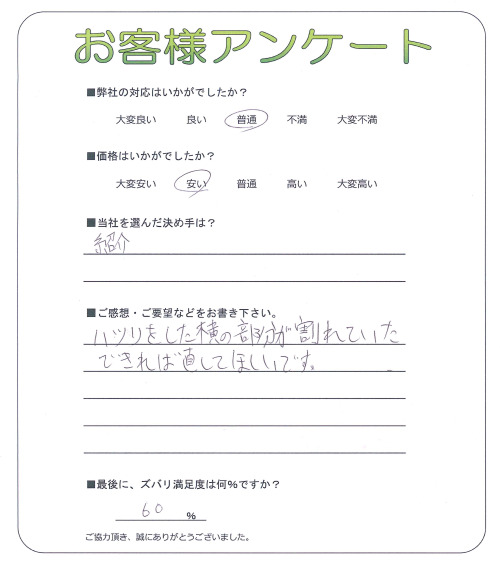 お客様アンケート
■弊社の対応はいかがでしたか？
大変良い 良い 普通 不満 大変不満
■価格はいかがでしたか？
大変安い 安い 普通 高い 大変高い
■当社を選んだ決め手は？
紹介
■ご感想・ご要望などをお書き下さい。
ハツリをした横の部分が割れていた
できれば直してほしいです。
■最後に、ズバリ満足度は何％ですか？
60 %
ご協力頂き、誠にありがとうございました。